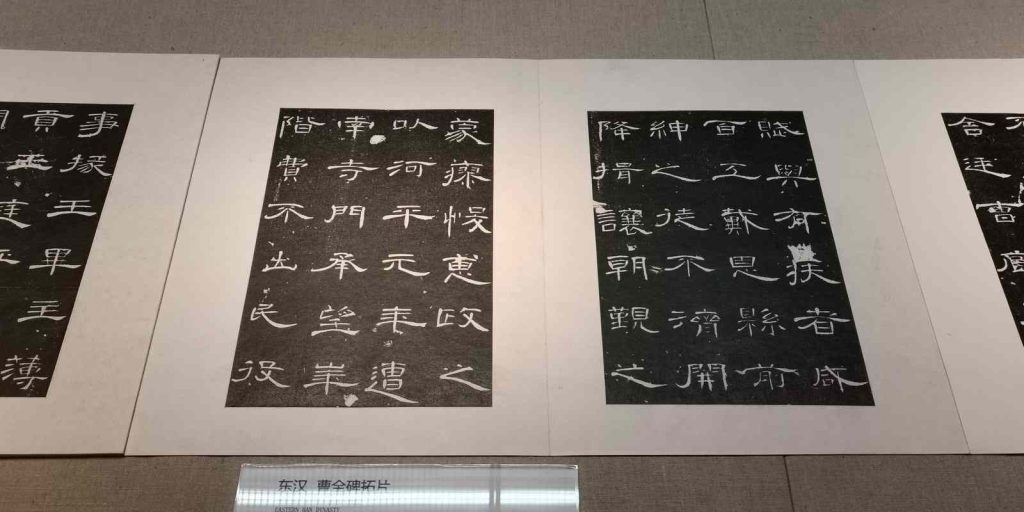 舍廷曹廊
賦與有疾者咸
百工戴恩縣前
紳之徒不濟開
降揖讓朝覲之
蒙瘳悛惠政之
以河平元年遭
南寺門承望崋
階費不出民役
事掾王畢主薄
东汉 曹全碑拓片
EASTERN HAN DYNASTY